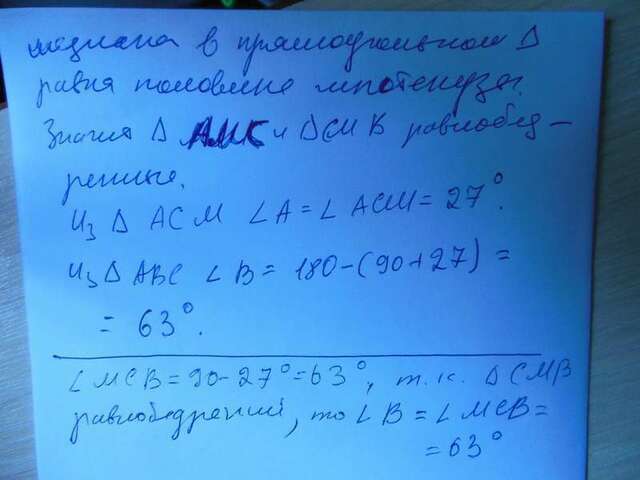 медиана в прямоугольном Δ
равна половине гипотенузы.
Значит Δ АМС и ΔСМВ равнобед-
ренные.
Из Δ АСМ ∠А = ∠АСМ = 27°.
Из Δ АВС ∠В = 180-(90+27) =
= 63°.
∠МСВ = 90-27°=63°, т.к. ΔСМВ
равнобедренный, то ∠В = ∠МСВ =
= 63°